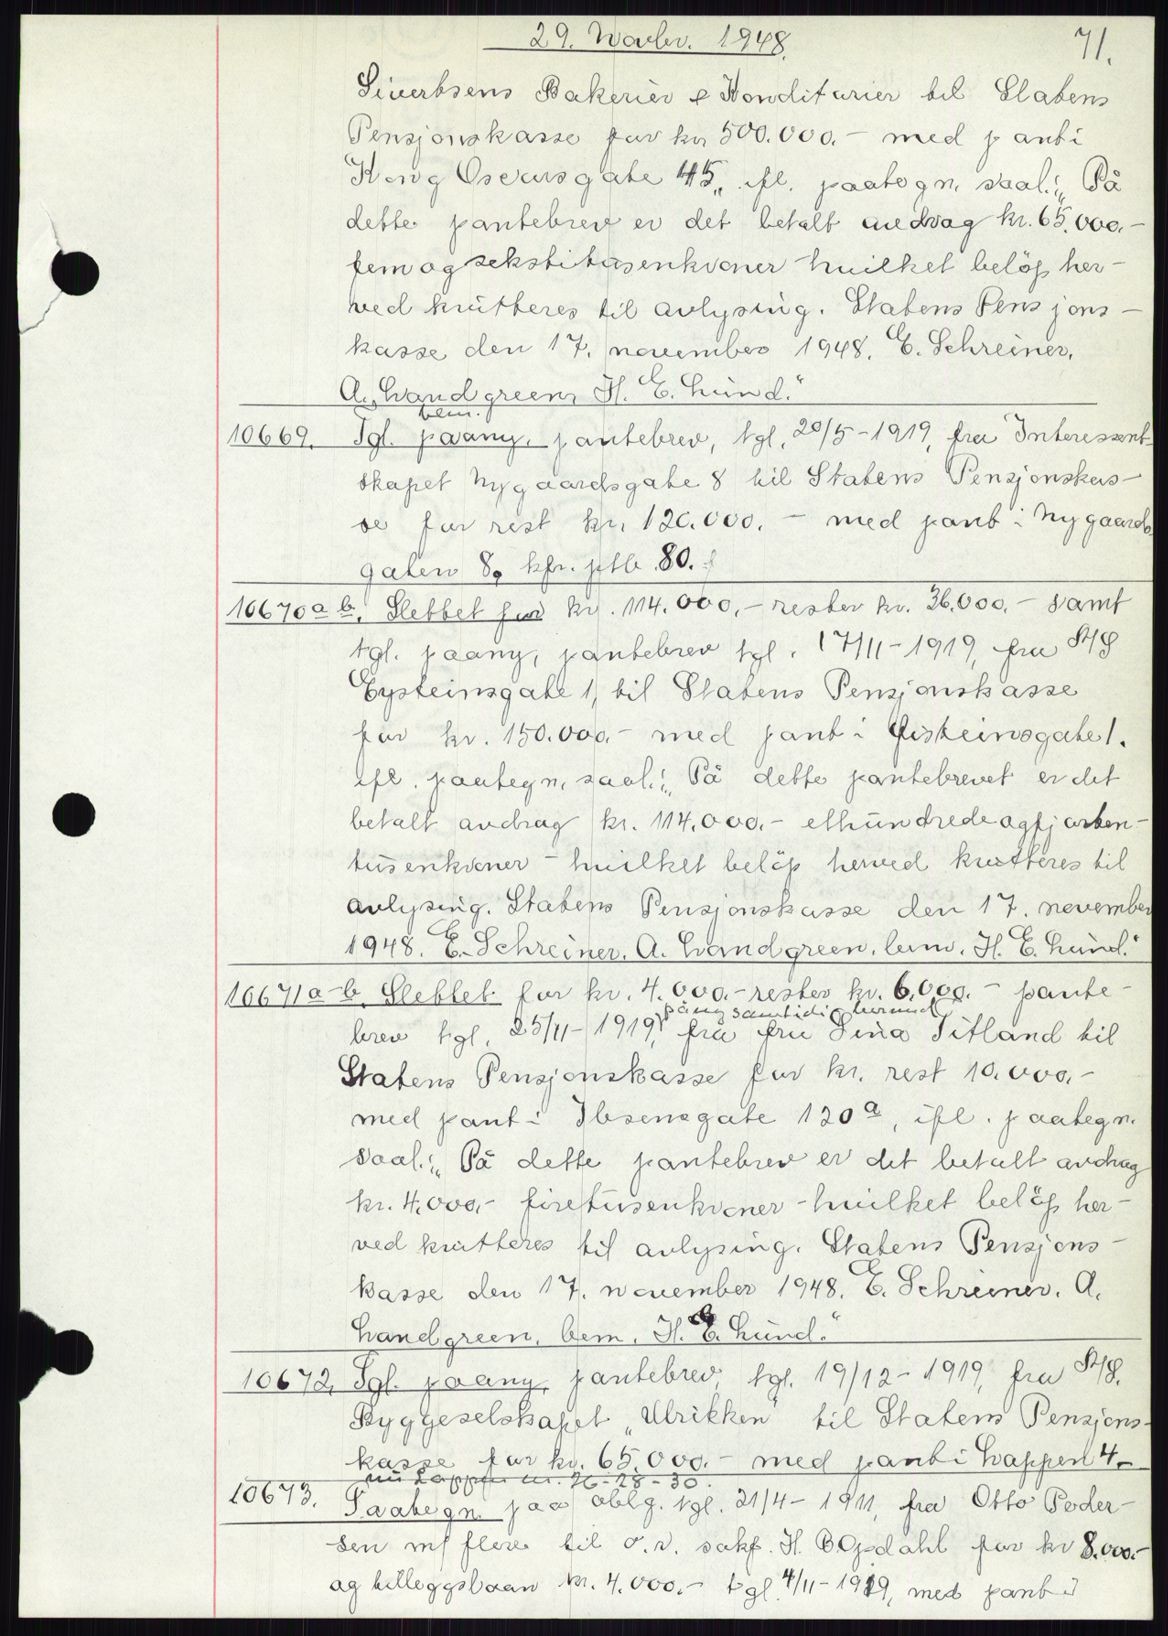 29. Novbr. 1948.
71.
Sivertsens Bakerier & Konditorier til Statens
Pensjonskasse for kr. 500.000.- med pant i
Kong Oscarsgate 45, ifl. paategn. saal.: „På
dette pantebrev er det betalt avdrag kr. 65.000.-
fem og sekstitusenkroner - hvilket beløp her-
ved kvitteres til avlysing. Statens Pensjons-
kasse den 17. november 1948. E. Schreiner.
A. Landgreen, H. E. Lund."
bem.
10669. Tgl. paany, pantebrev, tgl. 20/5-1919, fra Interessent-
skapet Nygaardsgate 8 til Statens Pensjonskas-
se for rest kr. 120.000.- med pant i Nygaards-
gaten 8, kfr. ptb. 80.
10670 a-b. Slettet for kr. 114.000.- rester kr. 36.000.- samt
tgl. paany, pantebrev tgl. 17/11-1919, fra A/S
Eysteinsgate 1, til Statens Pensjonskasse
for kr. 150.000.- med pant i Øisteinsgate 1.
ifl. paategn. saal.: „På dette pantebrevet er det
betalt avdrag kr. 114.000.- etthundredeogfjorten-
tusenkroner - hvilket beløp herved kvitteres til
avlysing. Statens Pensjonskasse den 17. november
1948. E. Schreiner. A. Landgreen. bem. H. E. Lund."
10671 a-b. Slettet for kr. 4.000.- rester kr. 6.000.- pante-
påny samtidig herved
brev tgl. 25/11-1919, fra fru Lina Titland til
Statens Pensjonskasse for kr. rest 10.000.-
med pant i Ibsensgate 120 a, ifl. paategn.
saal.: „På dette pantebrev er det betalt avdrag
kr. 4.000.- firetusenkroner - hvilket beløp her-
ved kvitteres til avlysing. Statens Pensjons-
kasse den 17. november 1948. E. Schreiner. A.
Landgreen. bem. H. E. Lund."
10672. Tgl. paany, pantebrev, tgl. 19/12-1919, fra A/S.
Byggeselskapet „Ulrikken" til Statens Pensjons-
kasse for kr. 65.000.- med pant i Lappen 4.-
nu Lappen nr. 26-28-30.
10673. Paategn. paa oblg. tgl. 21/4-1911, fra Otto Peder-
sen m/ flere til o.r. sakf. H. B. Opdahl for kr 8.000.-
og tilleggslaan kr. 4.000.- tgl. 4/11-1919, med pant i